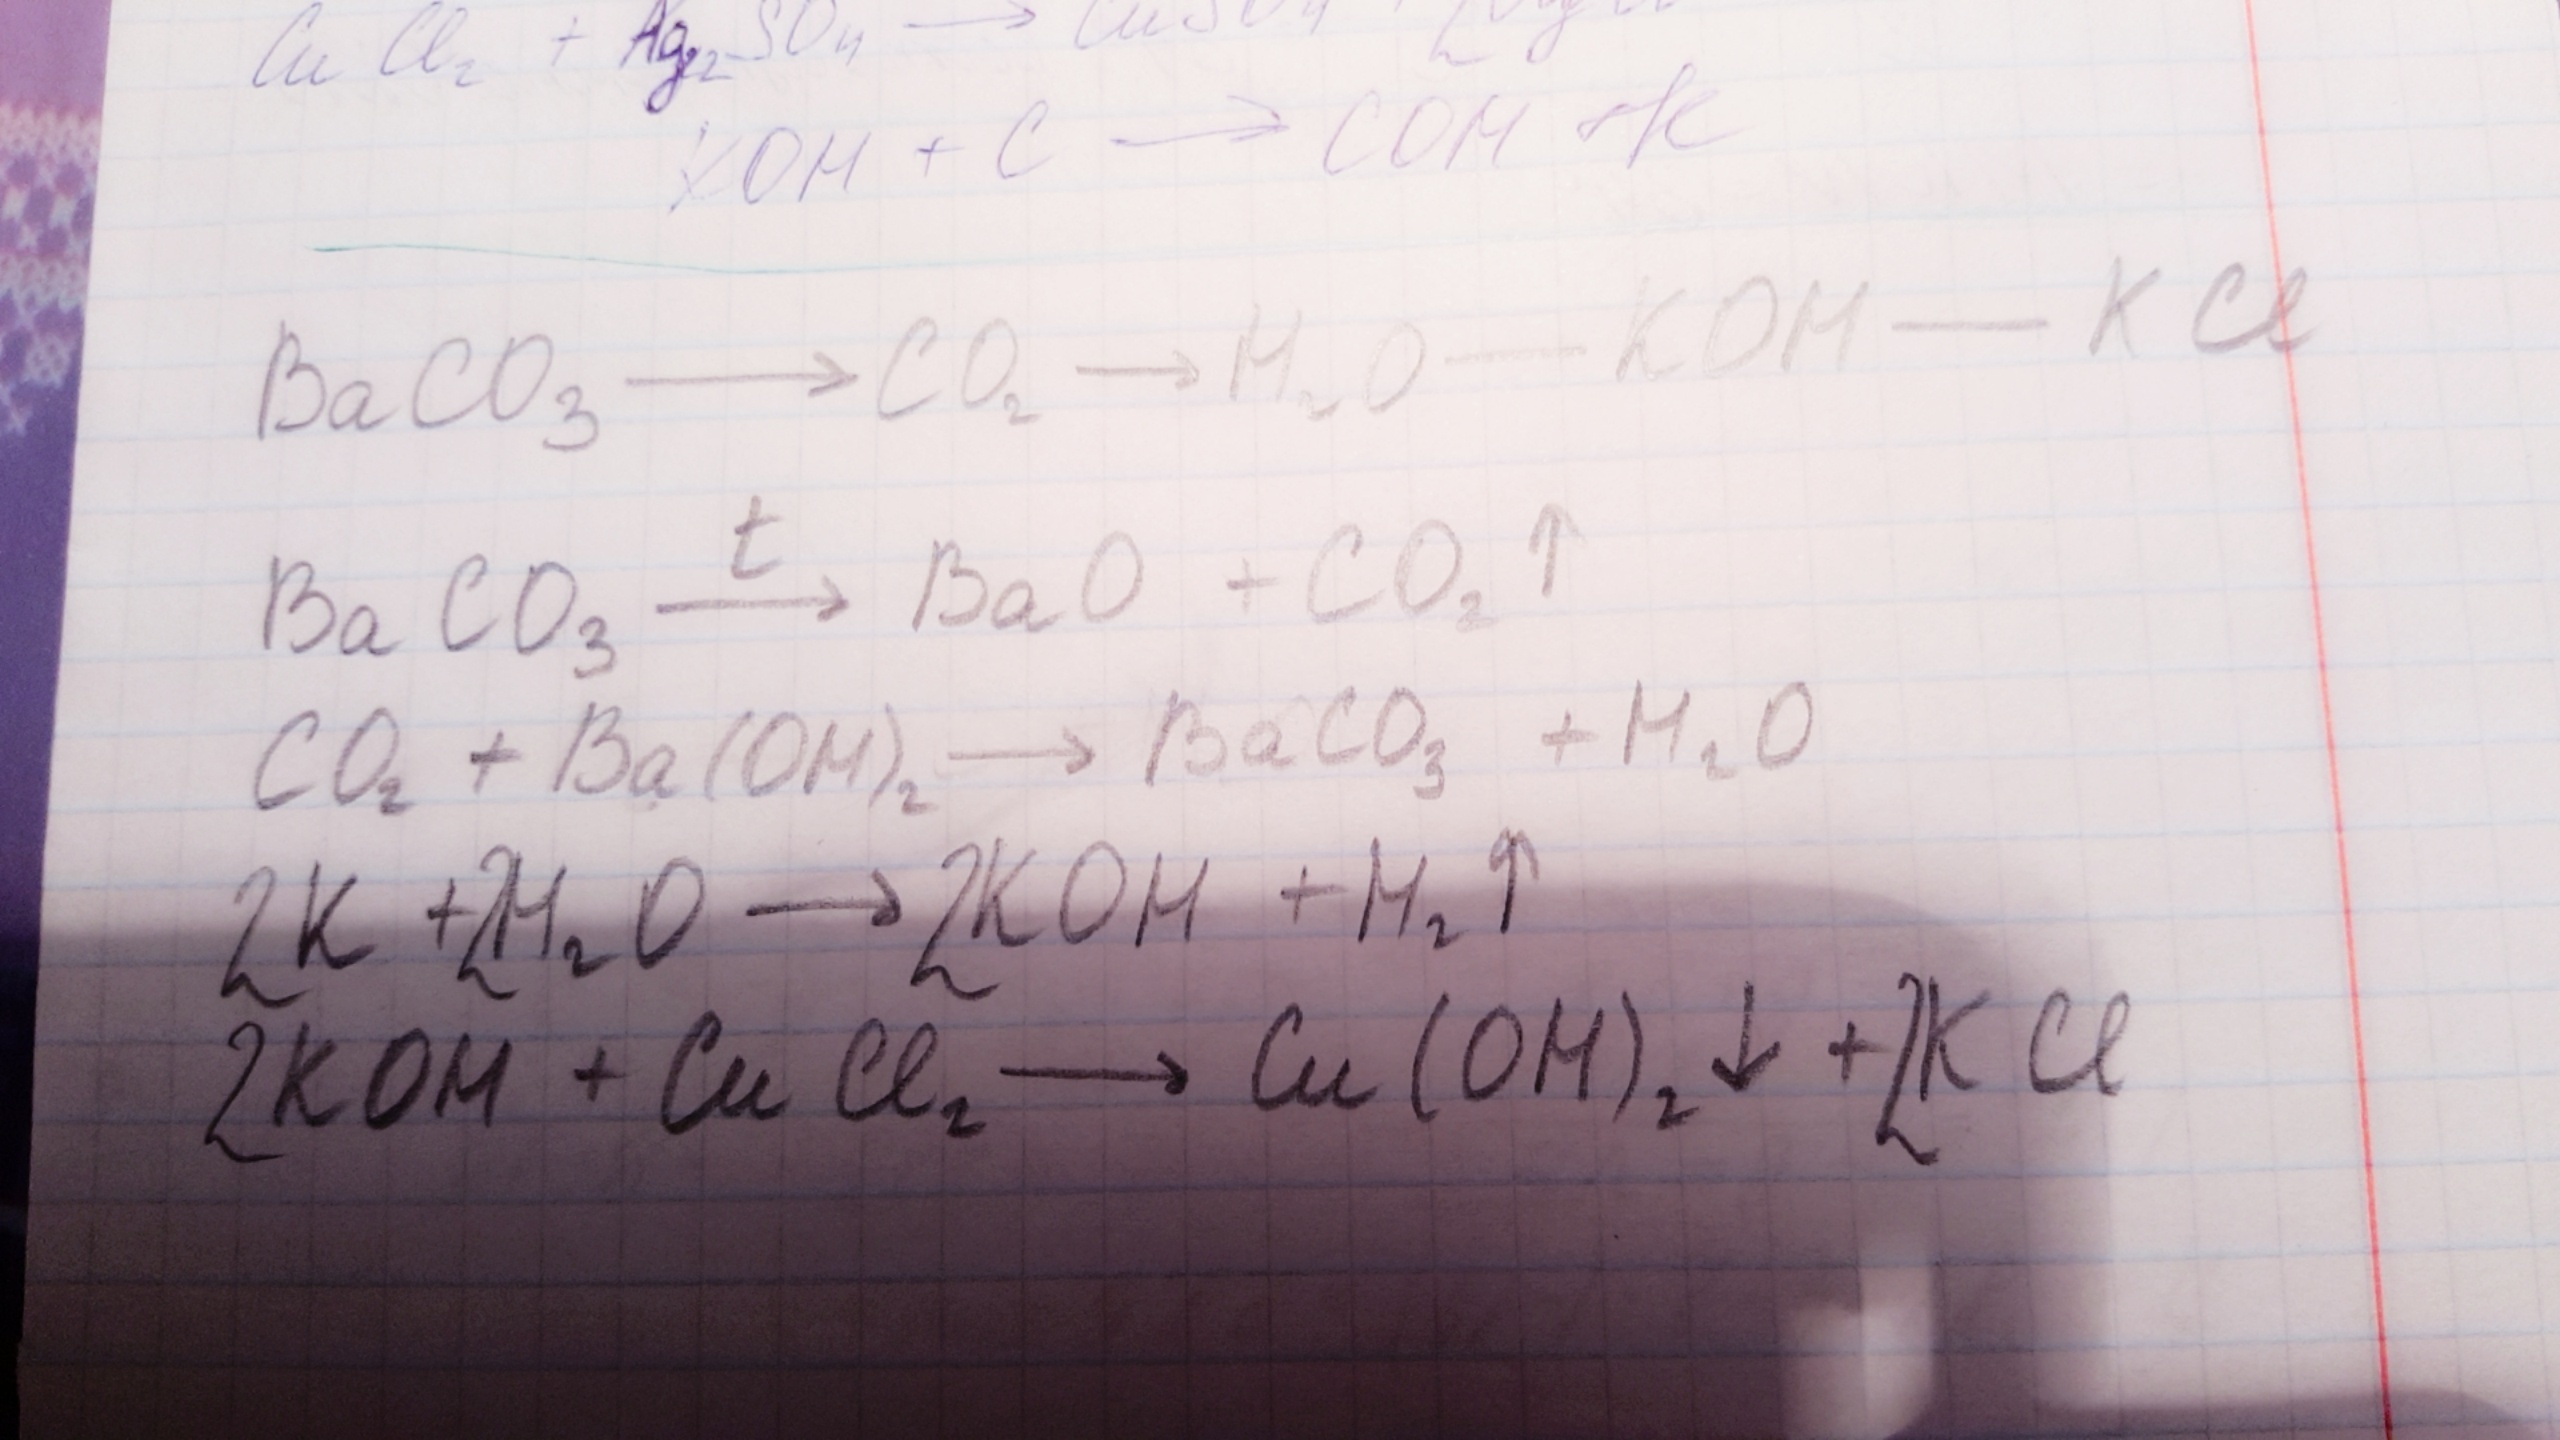 CuCl₂ + Ag₂SO₄ → CuSO₄ + 2AgCl
KOH + C → COH + K
BaCO₃ → CO₂ → H₂O — KOH — KCl
BaCO₃ →ᵗ BaO + CO₂↑
CO₂ + Ba(OH)₂ → BaCO₃ + H₂O
2K + 2H₂O → 2KOH + H₂↑
2KOH + CuCl₂ → Cu(OH)₂↓ + 2KCl